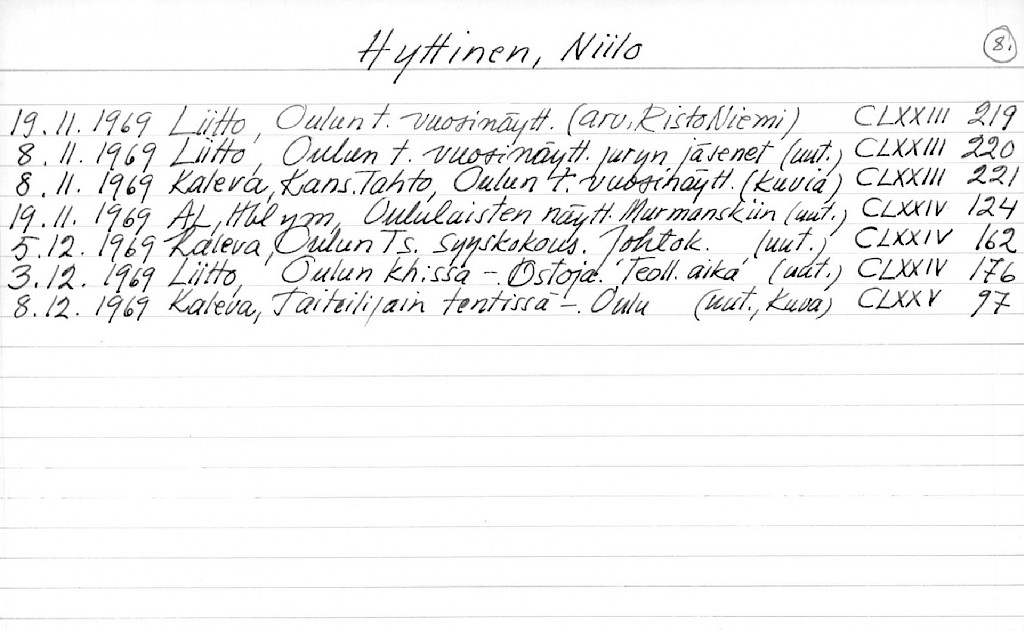 Hyttinen, Niilo 8.
19.11.1969 Liitto, Oulun t. vuosinäytt. (arv. Risto Niemi) CLXXIII 219
8.11.1969 Liitto, Oulun t. vuosinäytt. juryn jäsenet (uut.) CLXXIII 220
8.11.1969 Kaleva, Kans. Tahto, Oulun t. vuosinäytt. (kuvia) CLXXIII 221
19.11.1969 AL, Hbl ym, Oululaisten näytt. Murmanskiin (uut.) CLXXIV 124
5.12.1969 Kaleva, Oulun Ts. syyskokous. Johtok. (uut.) CLXXIV 162
3.12.1969 Liitto, Oulun kh:ssa -. Ostoja. 'Teoll. aika' (uut.) CLXXIV 176
8.12.1969 Kaleva, Taiteilijain tentissä -. Oulu (uut., kuva) CLXXV 97